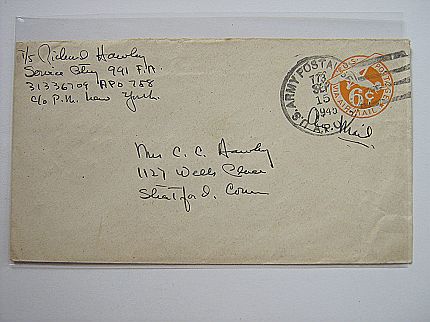 T/5 Richard Hawley
Service Btry 991 F.A.
31336709 APO 758
c/o P.M. New York.
U.S. ARMY POSTAL
SEP
15
1945
A.P.O.
U.S. POSTAGE
VIA AIR MAIL
6¢
Air Mail
Mrs C. C. Hawley
1127 Wells Place
Stratford, Conn